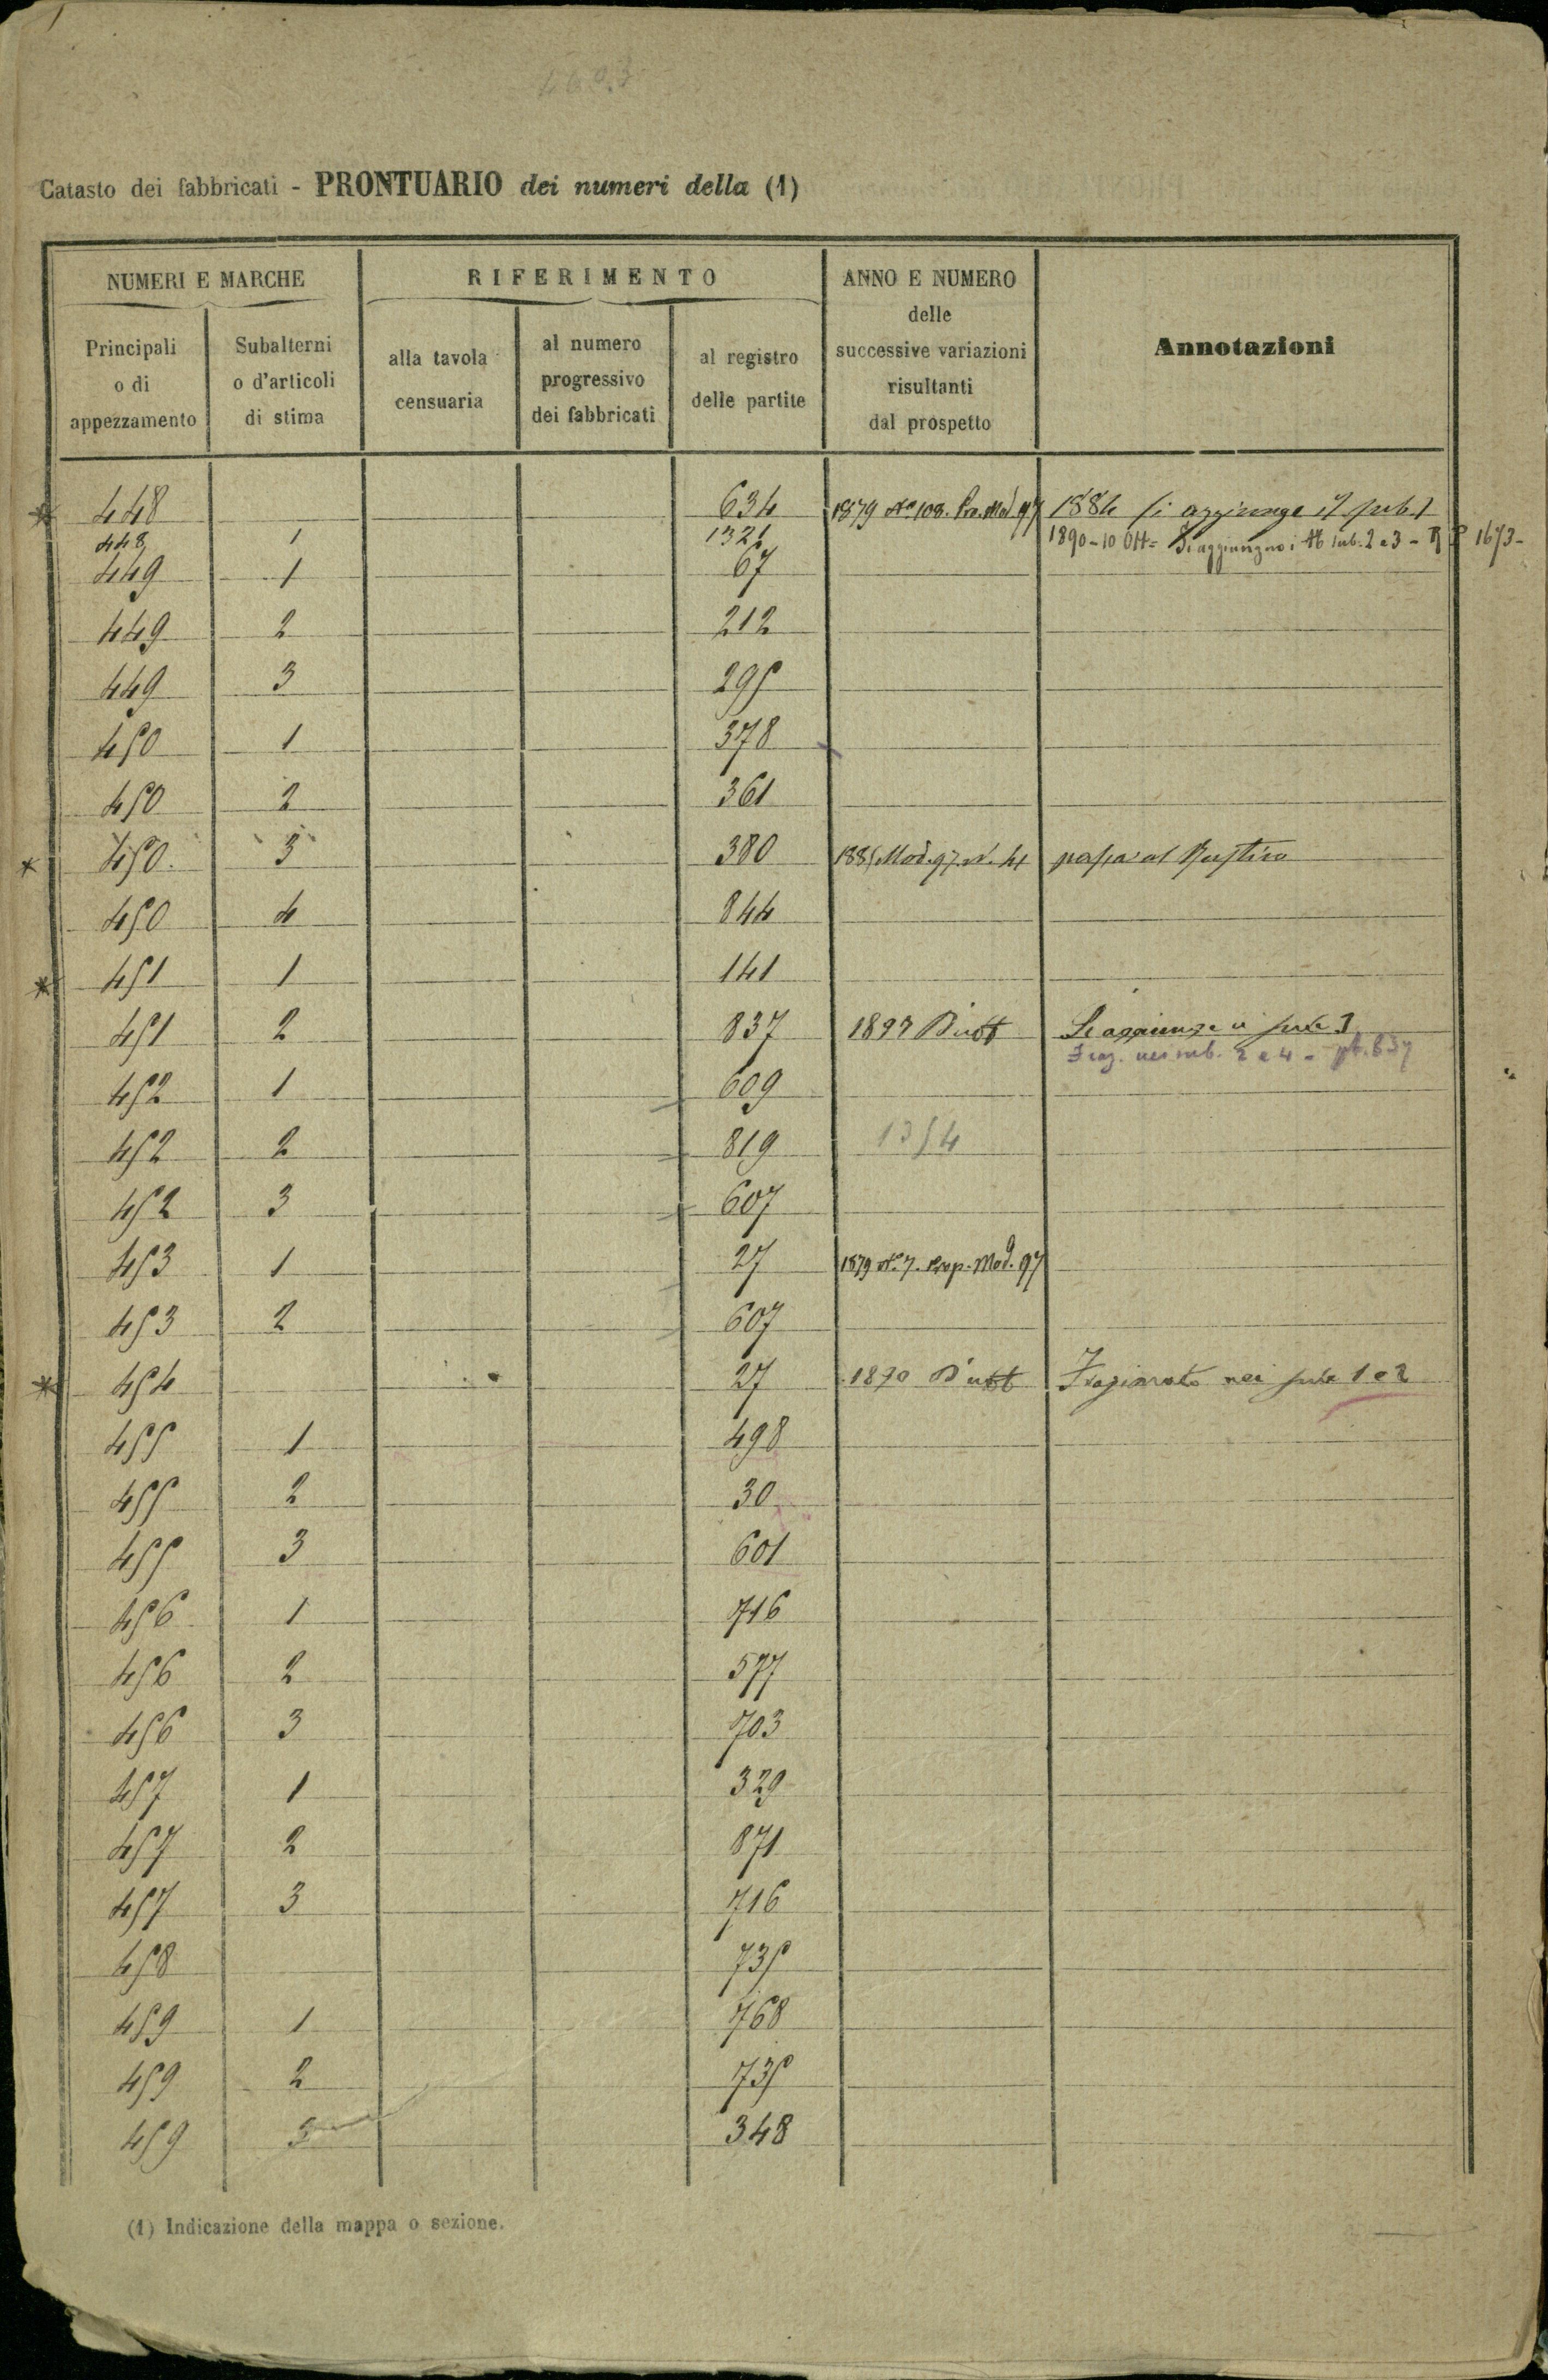 Catasto dei fabbricati - PRONTUARIO dei numeri della (1)
NUMERI E MARCHE
RIFERIMENTO
ANNO E NUMERO
delle
successive variazioni
risultanti
dal prospetto
Annotazioni
Principali
o di
appezzamento
Subalterni
o d'articoli
di stima
alla tavola
censuaria
al numero
progressivo
dei fabbricati
al registro
delle partite
* 448 634 1879 No 108. Mod. 97 1884 si aggiunge il sub. 1
448 1 1321 1890 - 10 Ott = Si aggiungono i sub. 2 e 3 - 1673 -
449 1 67
449 2 212
449 3 295
450 1 378
450 2 361
* 450. 3 380 1885 Mod. 97. N. 41 passa al Rustico
450 4 844
* 451 1 141
451 2 837 1897 Si aggiunge il sub 3
Fraz. nei sub. 2 e 4 -
452 1 609
452 2 819 1354
452 3 607
453 1 27 1879 N. 7. Prop. Mod. 97
453 2 607
* 454 27 1890 Frazionato nei sub 1 e 2
455 1 498
455 2 30
455 3 601
456 1 716
456 2 577
456 3 703
457 1 329
457 2 871
457 3 716
458 735
459 1 768
459 2 735
459 3 348
(1) Indicazione della mappa o sezione.